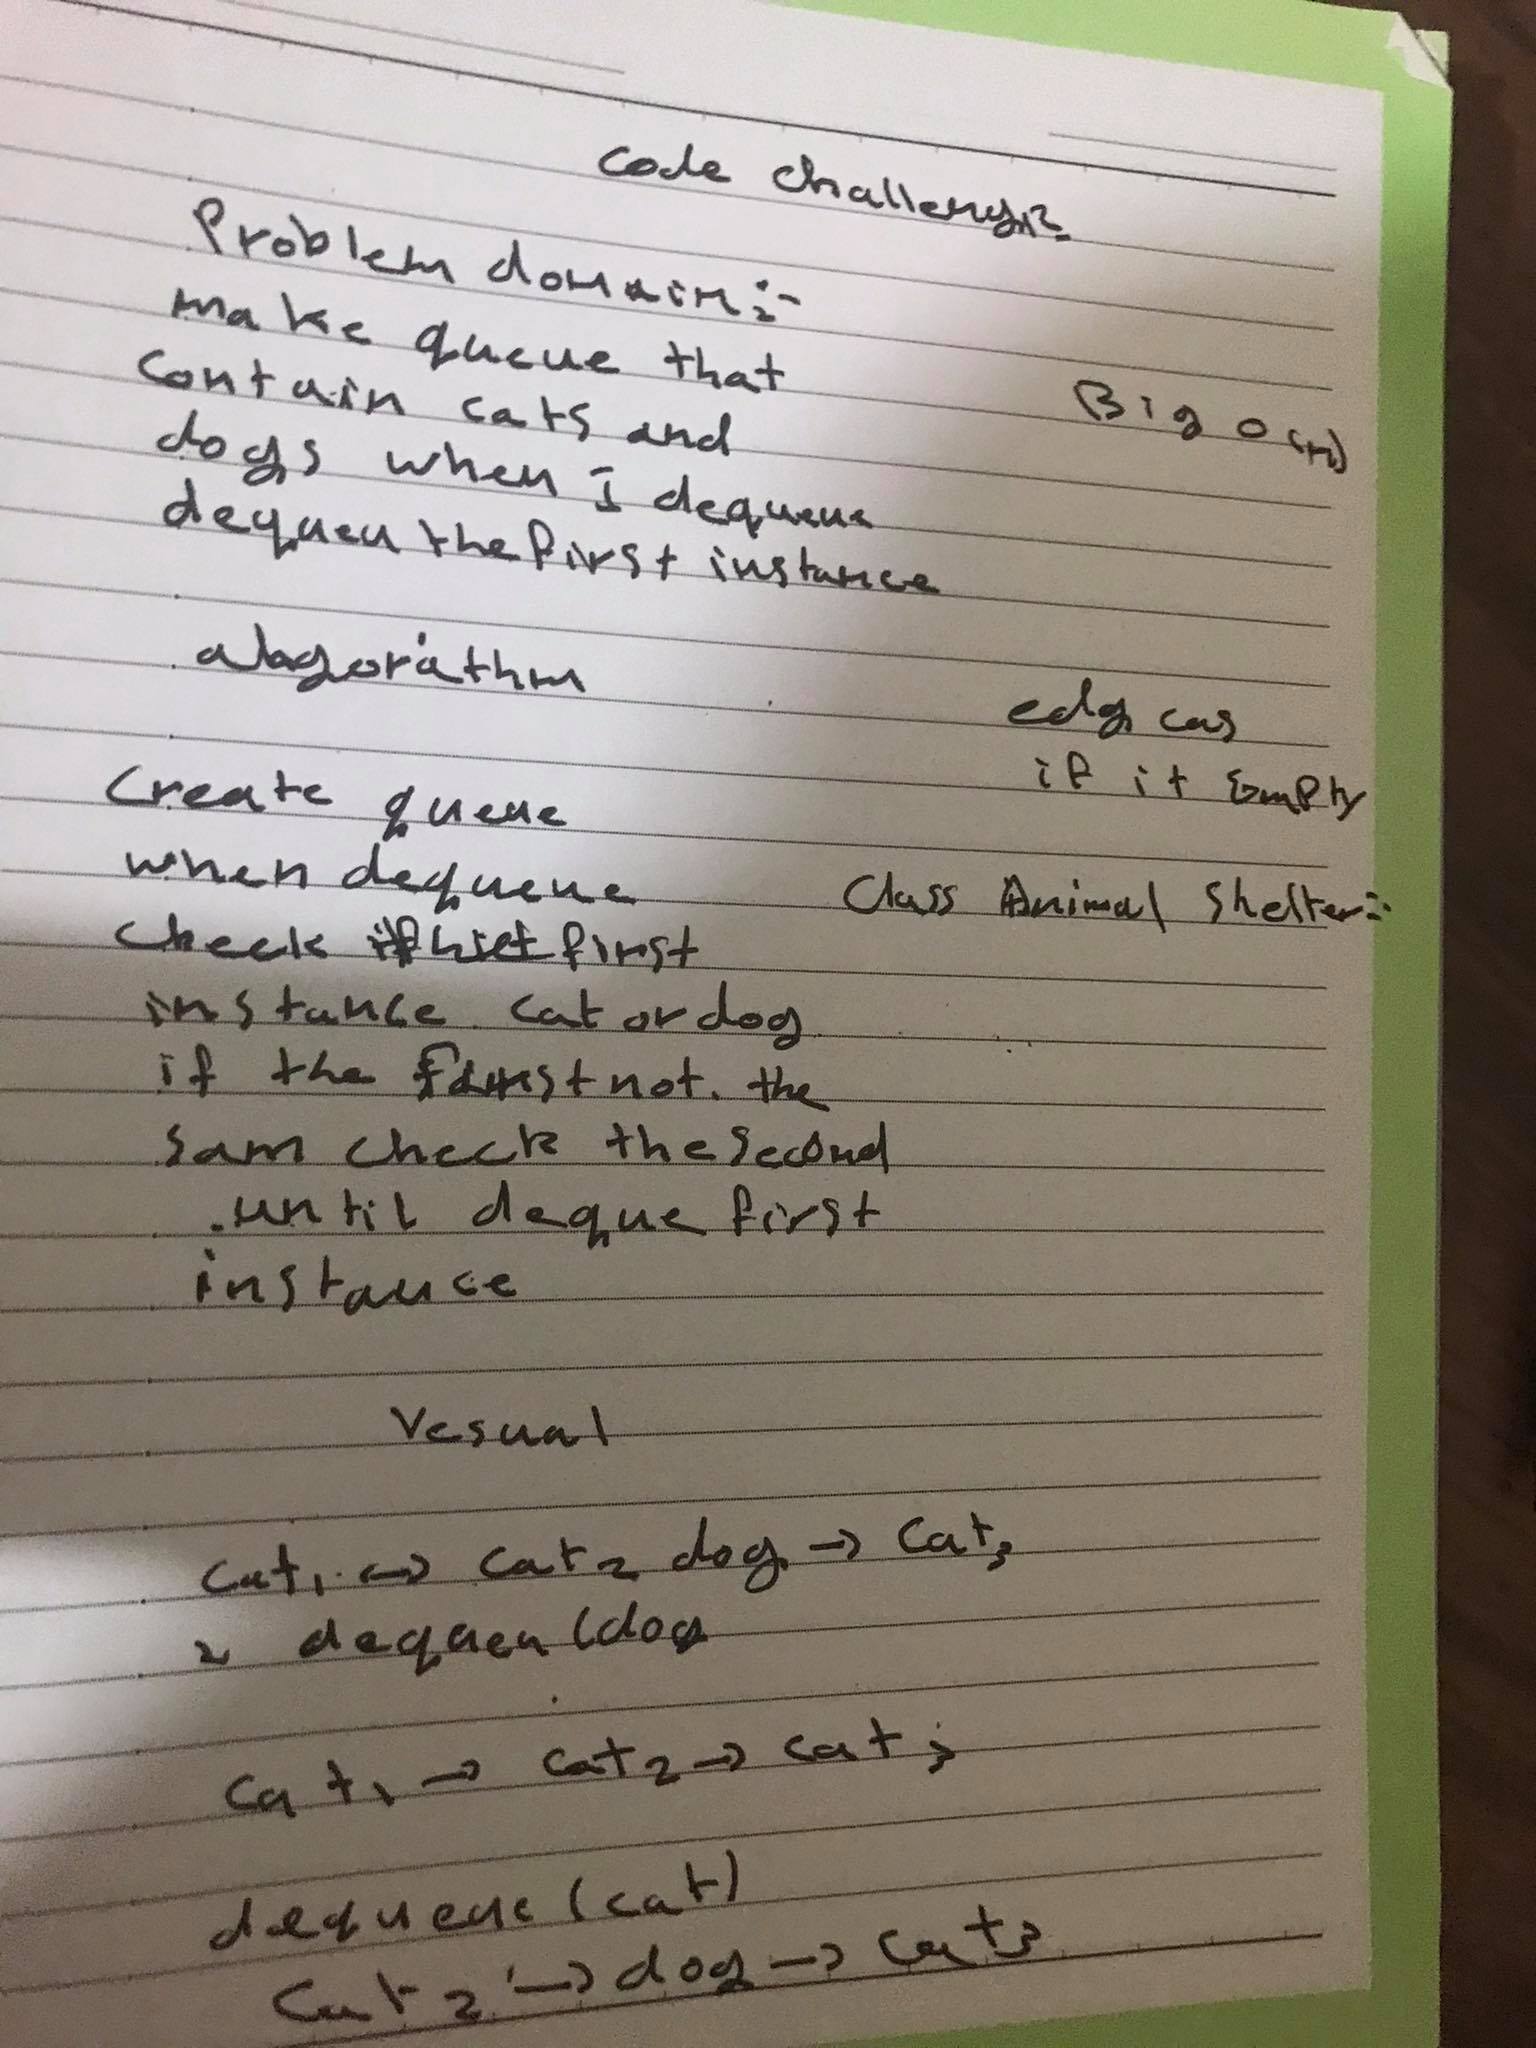 code challeng12
Problem domain:-
make queue that
contain cats and
dogs when I dequeue
dequeu the first instance
Big O(n)
algorithm
edg cas
if it Empty
Create queue
when dequeue
check first
instance cat or dog
if the first not. the
sam check the second
until deque first
instance
Class Animal Shelter:-
Vesual
cat1 -> cat2 dog -> cat3
dequeu (dog
cat1 -> cat2 -> cat3
dequeue (cat)
Cat2 -> dog -> cat3